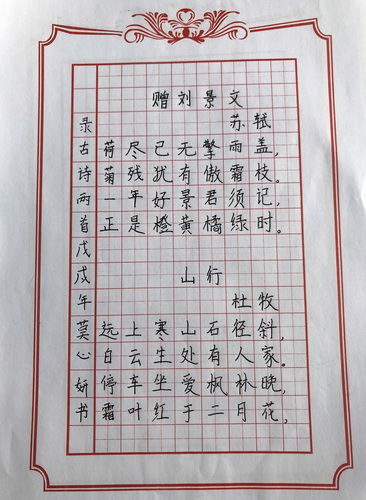 赠刘景文
苏轼
荷尽已无擎雨盖,
菊残犹有傲霜枝。
一年好景君须记,
正是橙黄橘绿时。
山行
杜牧
远上寒山石径斜,
白云生处有人家。
停车坐爱枫林晚,
霜叶红于二月花,
录古诗两首戊戌年莫心妍书